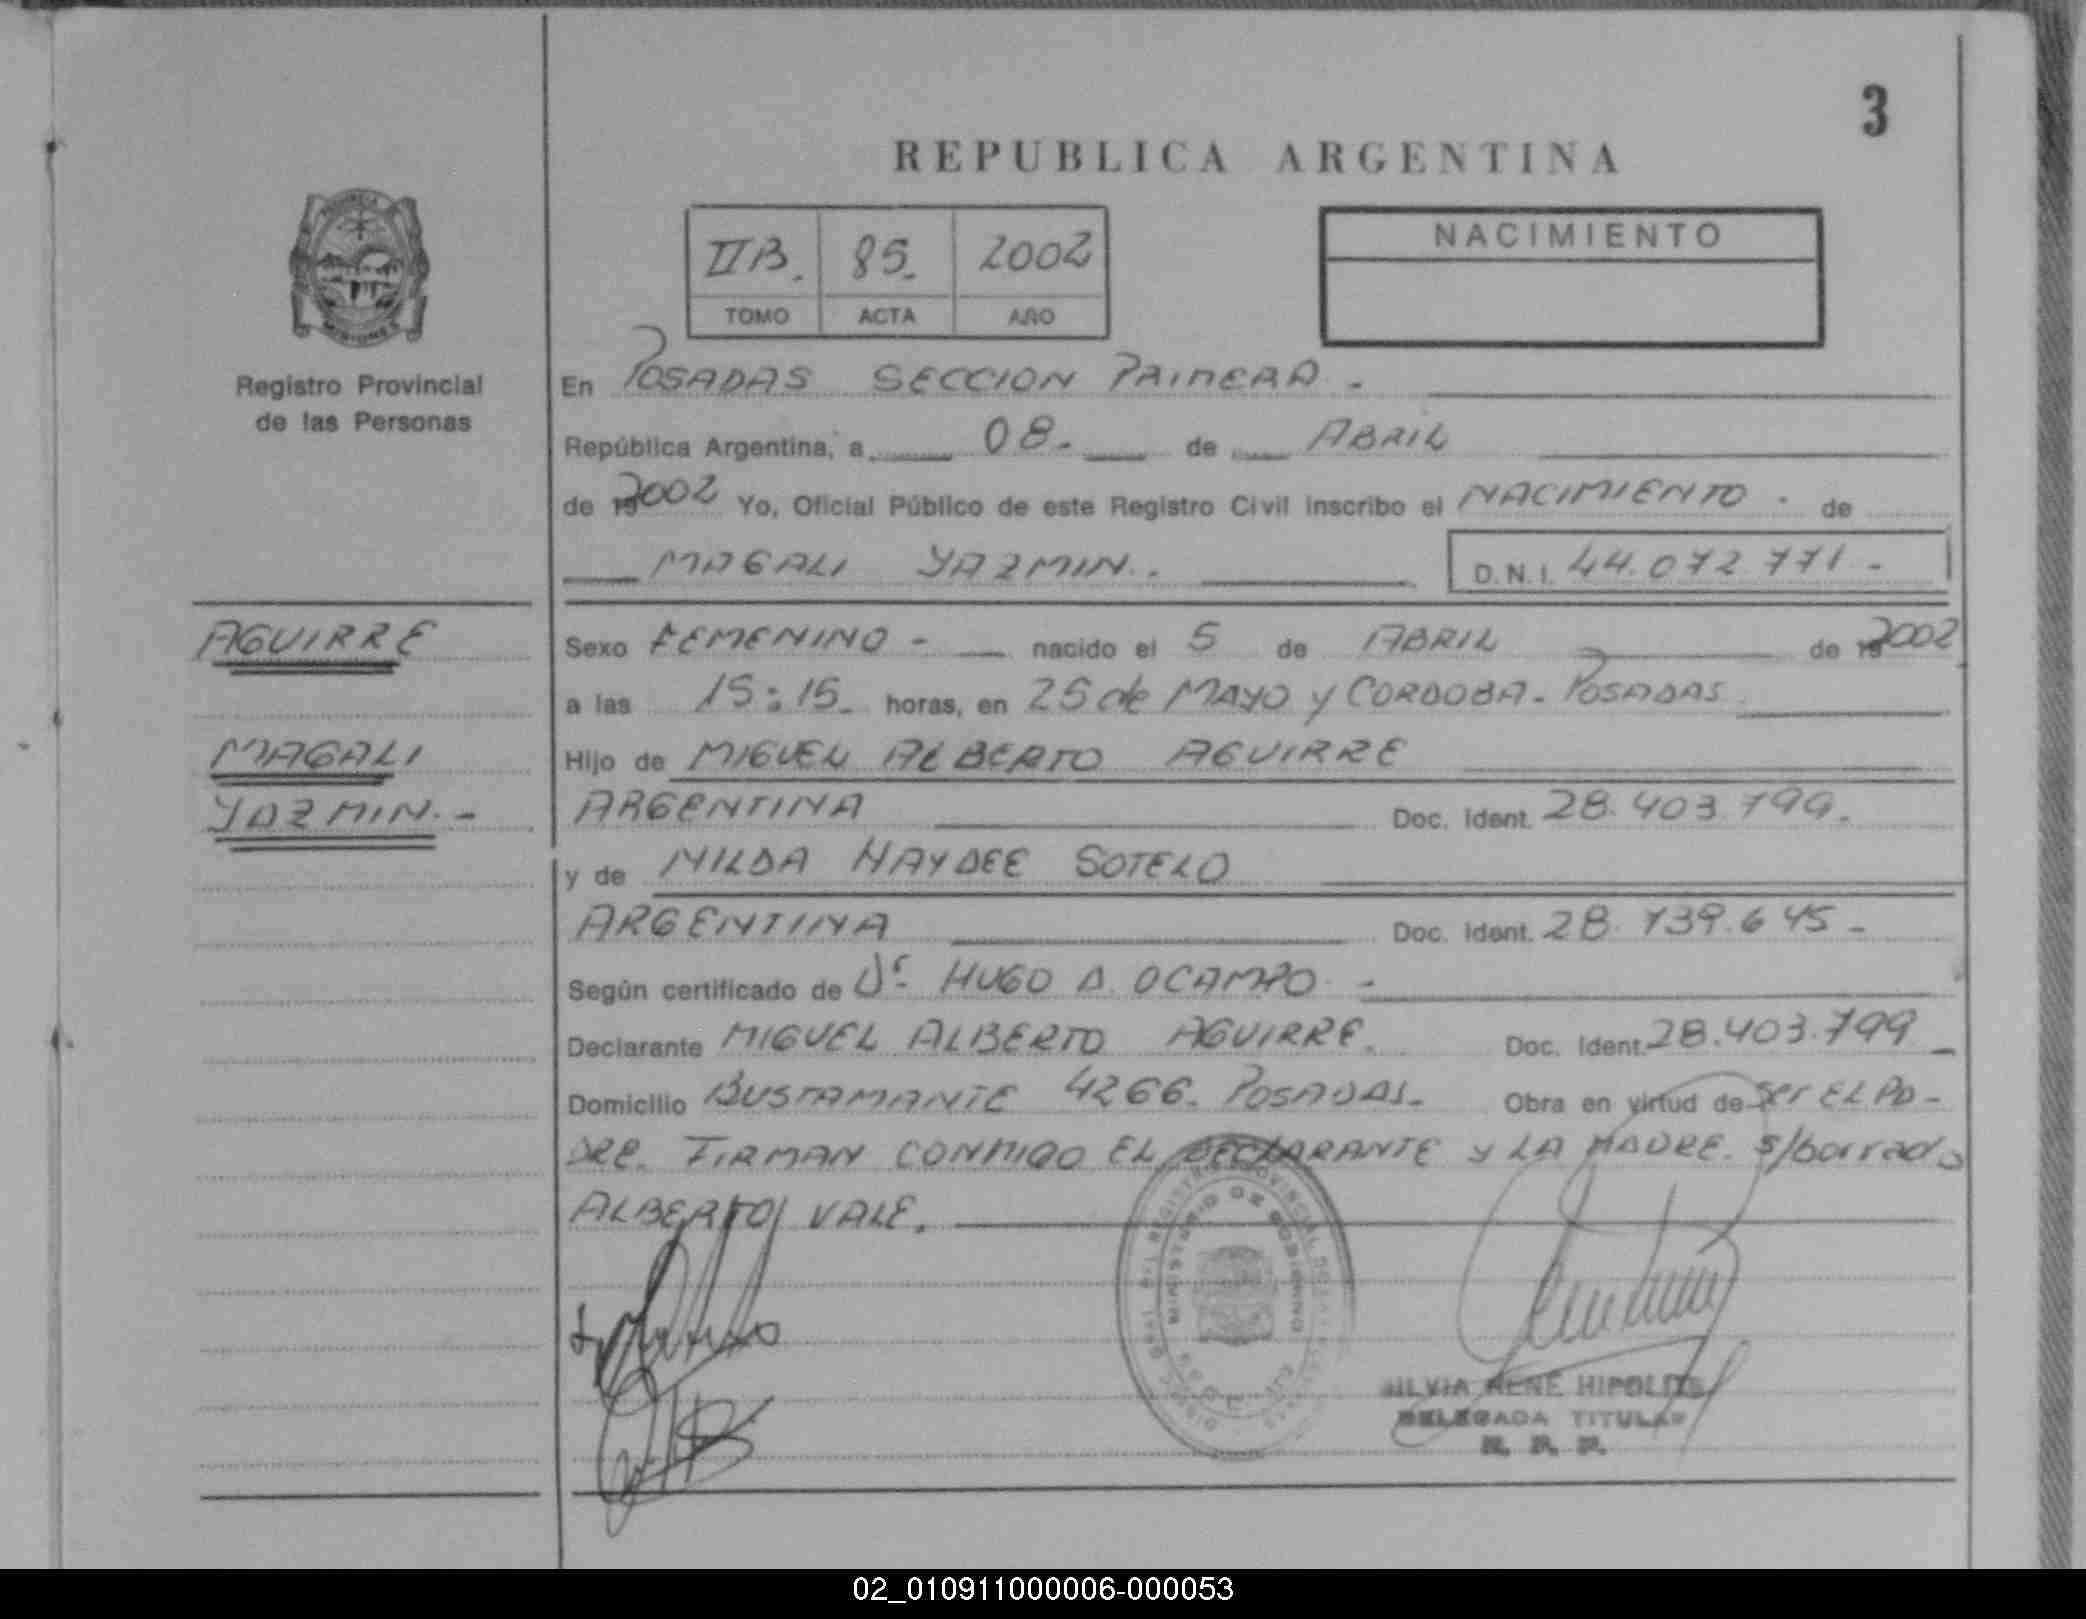 3
REPUBLICA ARGENTINA
IIB. 85. 2002
TOMO ACTA AÑO
NACIMIENTO
MISIONES
Registro Provincial
de las Personas
En POSADAS SECCION PRIMERA.-
República Argentina, a 08.- de ABRIL
de 192002 Yo, Oficial Público de este Registro Civil inscribo el NACIMIENTO. de
MAGALI YAZMIN.. D.N.I. 44.072.771.-
AGUIRRE
MAGALI
YAZMIN.-
Sexo FEMENINO - nacido el 5 de ABRIL de 192002
a las 15:15. horas, en 25 de MAYO y CORDOBA. POSADAS.
Hijo de MIGUEL ALBERTO AGUIRRE
ARGENTINA Doc. Ident. 28.403.799.
y de NILDA HAYDEE SOTELO
ARGENTINA Doc. Ident. 28.739.645-
Según certificado de Dr. HUGO D. OCAMPO.-
Declarante MIGUEL ALBERTO AGUIRRE. Doc. Ident. 28.403.799
Domicilio BUSTAMANTE 4266. POSADAS. Obra en virtud de ser EL PA-
DRE. FIRMAN CONMIGO EL DECLARANTE y LA MADRE. s/borrado
ALBERTO/ VALE.
MINISTERIO DE GOBIERNO
SILVIA RENE HIPOLITO
DELEGADA TITULAR
R. P. P.
02_010911000006-000053